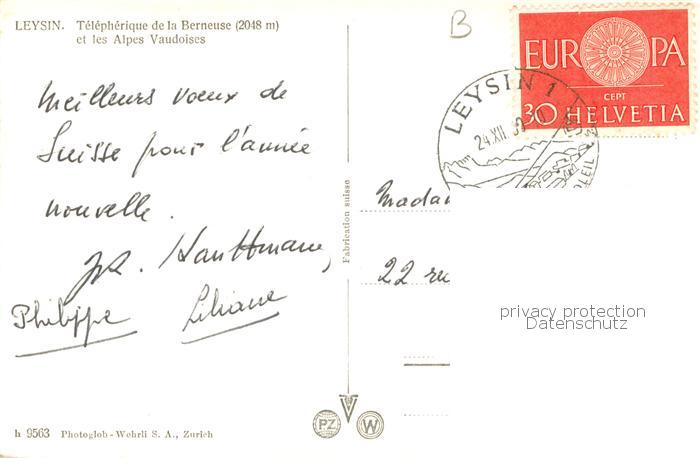 LEYSIN. Téléphérique de la Berneuse (2048 m)
et les Alpes Vaudoises
B
EUROPA
CEPT
30 HELVETIA
LEYSIN 1
24.XII
Meilleurs voeux de
Suisse pour l'année
nouvelle.
Philippe Liliane
Fabrication suisse
Madam
22 ru
privacy protection
Datenschutz
PZ W
h 9563 Photoglob-Wehrli S. A., Zurich